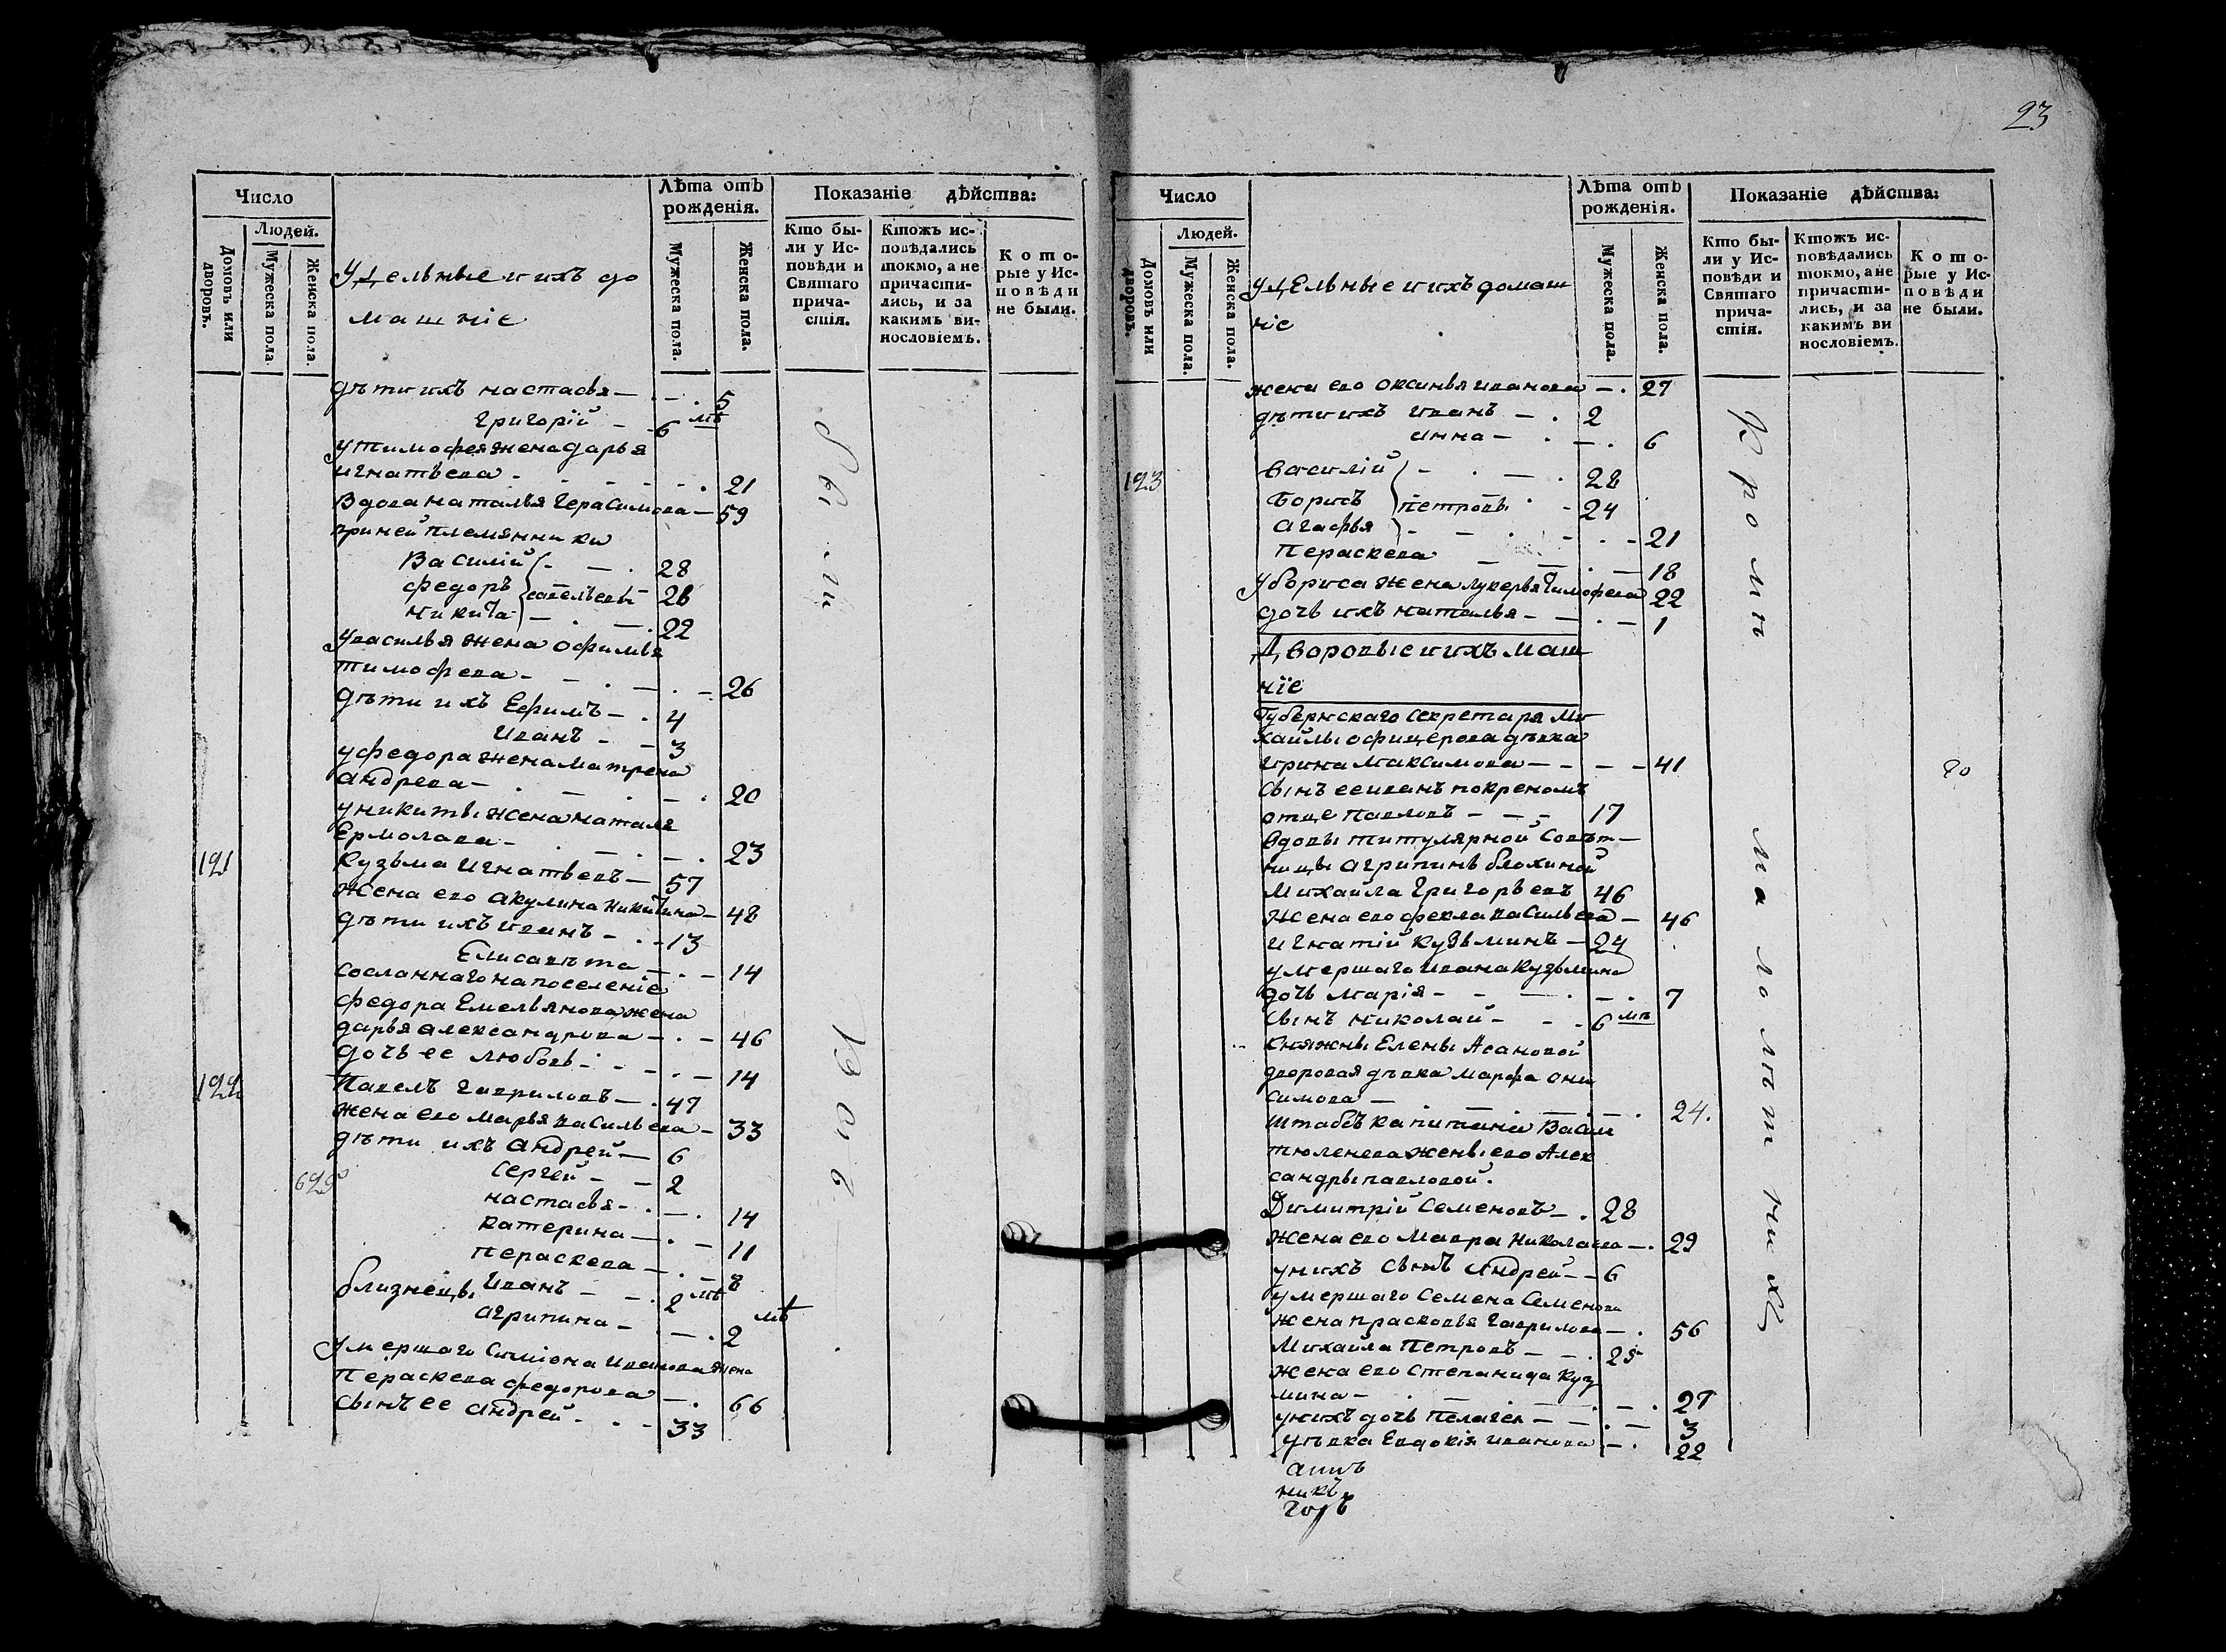 Число
Людей.
Домовъ или дворовъ.
Мужеска пола.
Женска пола.
Удельные и ихъ до
машніе
Лѣта отъ рожденія.
Мужеска пола.
Женска пола.
Показаніе дѣйства:
Кто бы-
ли у Ис-
повѣди и
Святаго
прича-
стія.
Ктожъ ис-
повѣдались
токмо, а не
причасти-
лись, и за
какимъ ви-
нословіемъ.
Кото-
рые у Ис-
повѣди
не были.
дѣти ихъ настасья — 5
Григорій — 6 мѣ
у тимофея жена дарья
игнатьева — 21
Вдова наталья Герасимова — 59
при ней племянники
Василій — 28
федоръ савельевы 26
никита — 22
у василья жена офимья
тимофева — 26
дѣти ихъ Ефимъ — 4
Иванъ — 3
у федора жена матрена
андрева — 20
у никиты жена наталя
Ермолава — 23
121 Кузьма Игнатьевъ — 57
жена его акулина никитина — 48
дѣти ихъ иванъ — 13
Елисавѣта — 14
сосланнаго на поселеніе
федора Емельянова жена
дарья александрова — 46
дочь ее любовь — 14
122 Павелъ гавриловъ — 47
жена его марья васильева — 33
дѣти ихъ андрей — 6
Сергей — 2
настасья — 14
катерина — 11
пераскева — 8
близнецы Иванъ — 2 мѣ
агрипина — 2 мѣ
умершаго Симіона Иванова жена
Пераскева федорова — 66
сынъ ее андрей — 33
23
Число
Людей.
Домовъ или дворовъ.
Мужеска пола.
Женска пола.
удельные и ихъ домаш
ніе
Лѣта отъ рожденія.
Мужеска пола.
Женска пола.
Показаніе дѣйства:
Кто бы-
ли у Ис-
повѣди и
Святаго
прича-
стія.
Ктожъ ис-
повѣдались
токмо, а не
причасти-
лись, и за
какимъ ви
нословіемъ.
Кото-
рые у Ис-
повѣди
не были.
жена его оксинья иванова — 27
дѣти ихъ иванъ — 2
анна — 6
123 василій — 28
борисъ петровы — 24
агафья — 21
Пераскева — 18
у бориса жена лукерья тимофева 22
дочь ихъ наталья — 1
Дворовые и ихъ маш
ніе
Губернскаго секретаря Ми
хайлы офицерова дѣвка
ирина максимова — 41
сынъ ее иванъ по креномъ
отце павловъ — 17
вдовы титулярной совѣт—
ницы агрипины блохиной
михайла григорьевъ 46
жена его фекла васильева — 46
игнатій кузьминъ — 24
умершаго ивана кузьмина
дочь марія — 7
сынъ николай — 6 мѣ
княжны Елены Асановой
дворовая дѣвка марфа они
симова — 24.
штабсъ капитана Васил
тюленева жены его Алек
сандры павловой.
Димитрій Семеновъ — 28
жена его мавра николаева — 29
у нихъ сынъ андрей — 6
умершаго семена семенова
жена прасковья гаврилова — 56
михайла петровъ — 25
жена его степанида куз
мина — 27
у нихъ дочь пелагея — 3
дѣвка Евдокія иванова — 22
Кромѣ малолѣтнихъ